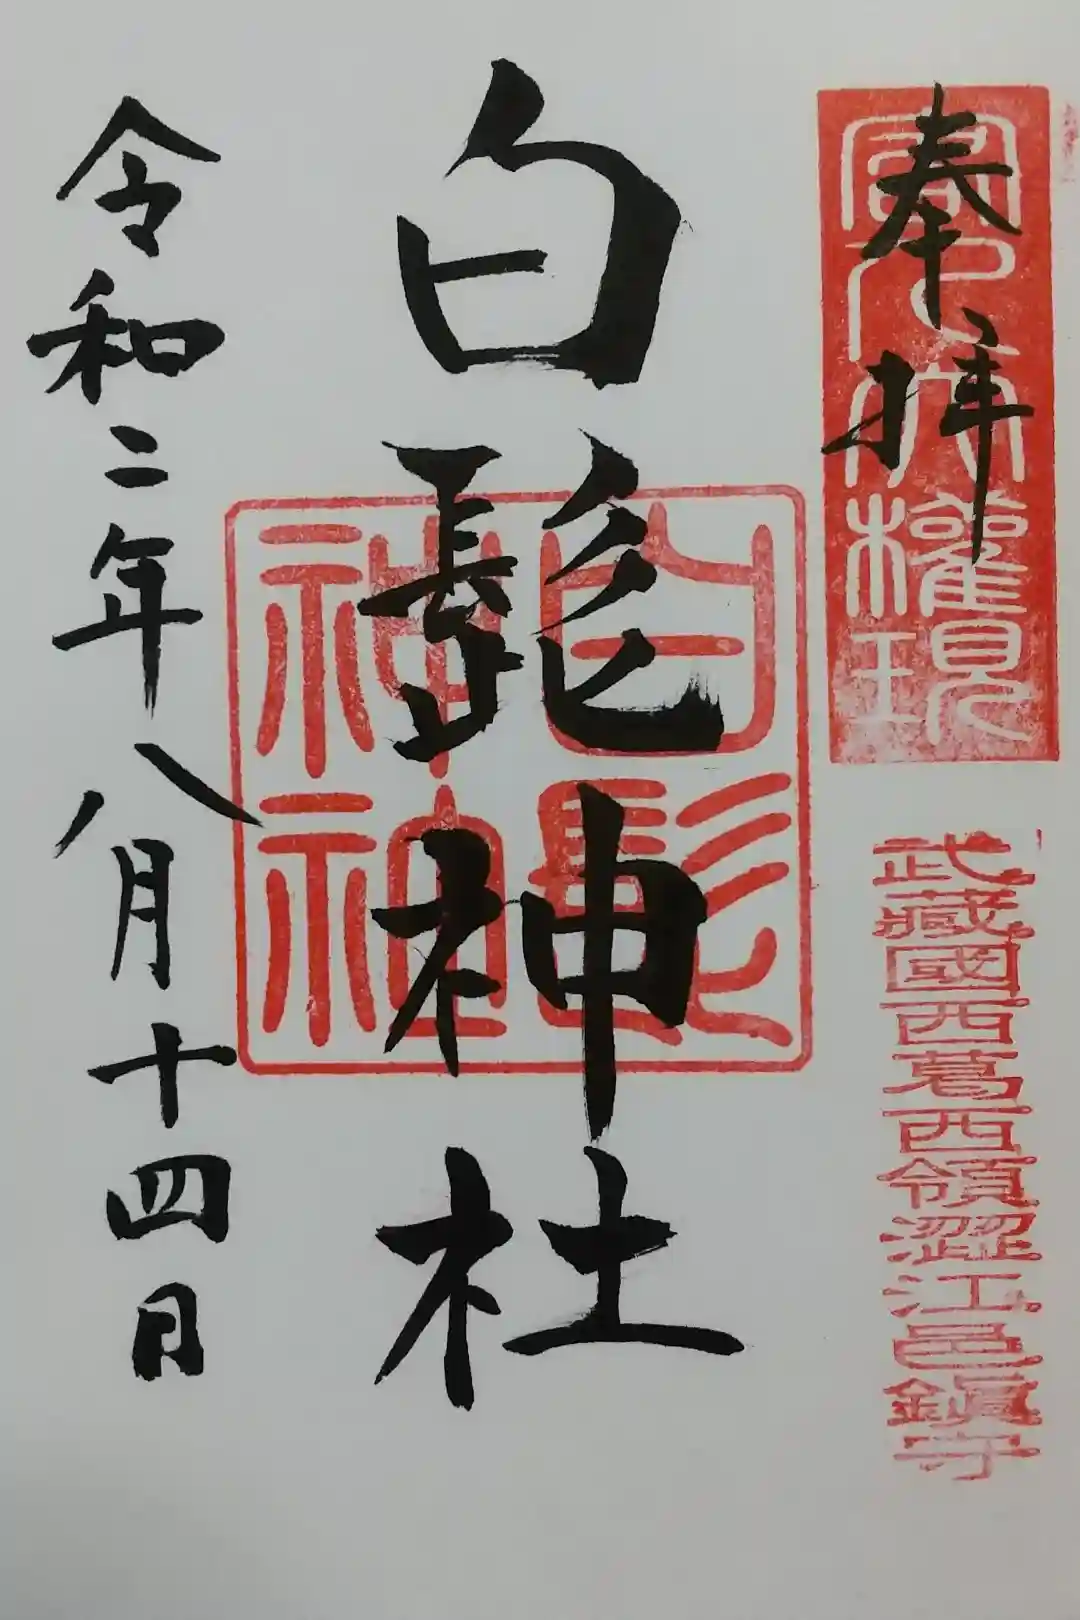 奉拝
客人大權現
武藏國西葛西領澀江邑鎭守
白髭神社
白髭
令和二年八月十四日